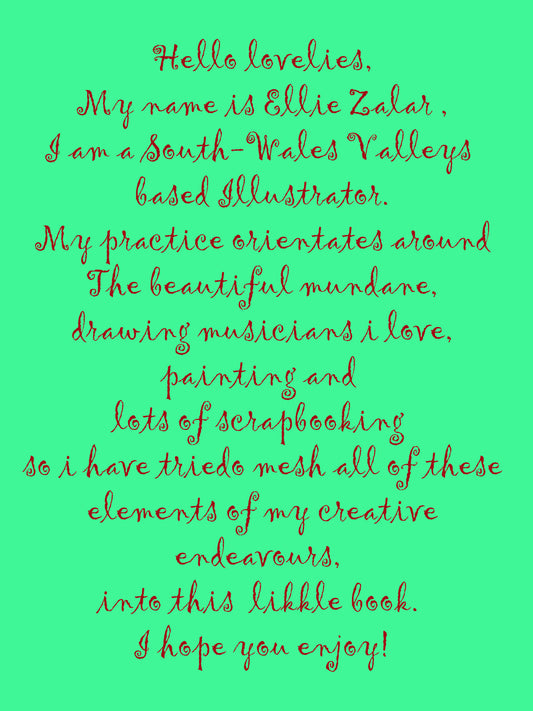 Hello lovelies,
My name is Ellie Zalar ,
I am a South-Wales Valleys
based Illustrator.
My practice orientates around
The beautiful mundane,
drawing musicians i love,
painting and
lots of scrapbooking
so i have triedo mesh all of these
elements of my creative
endeavours,
into this likkle book.
I hope you enjoy!